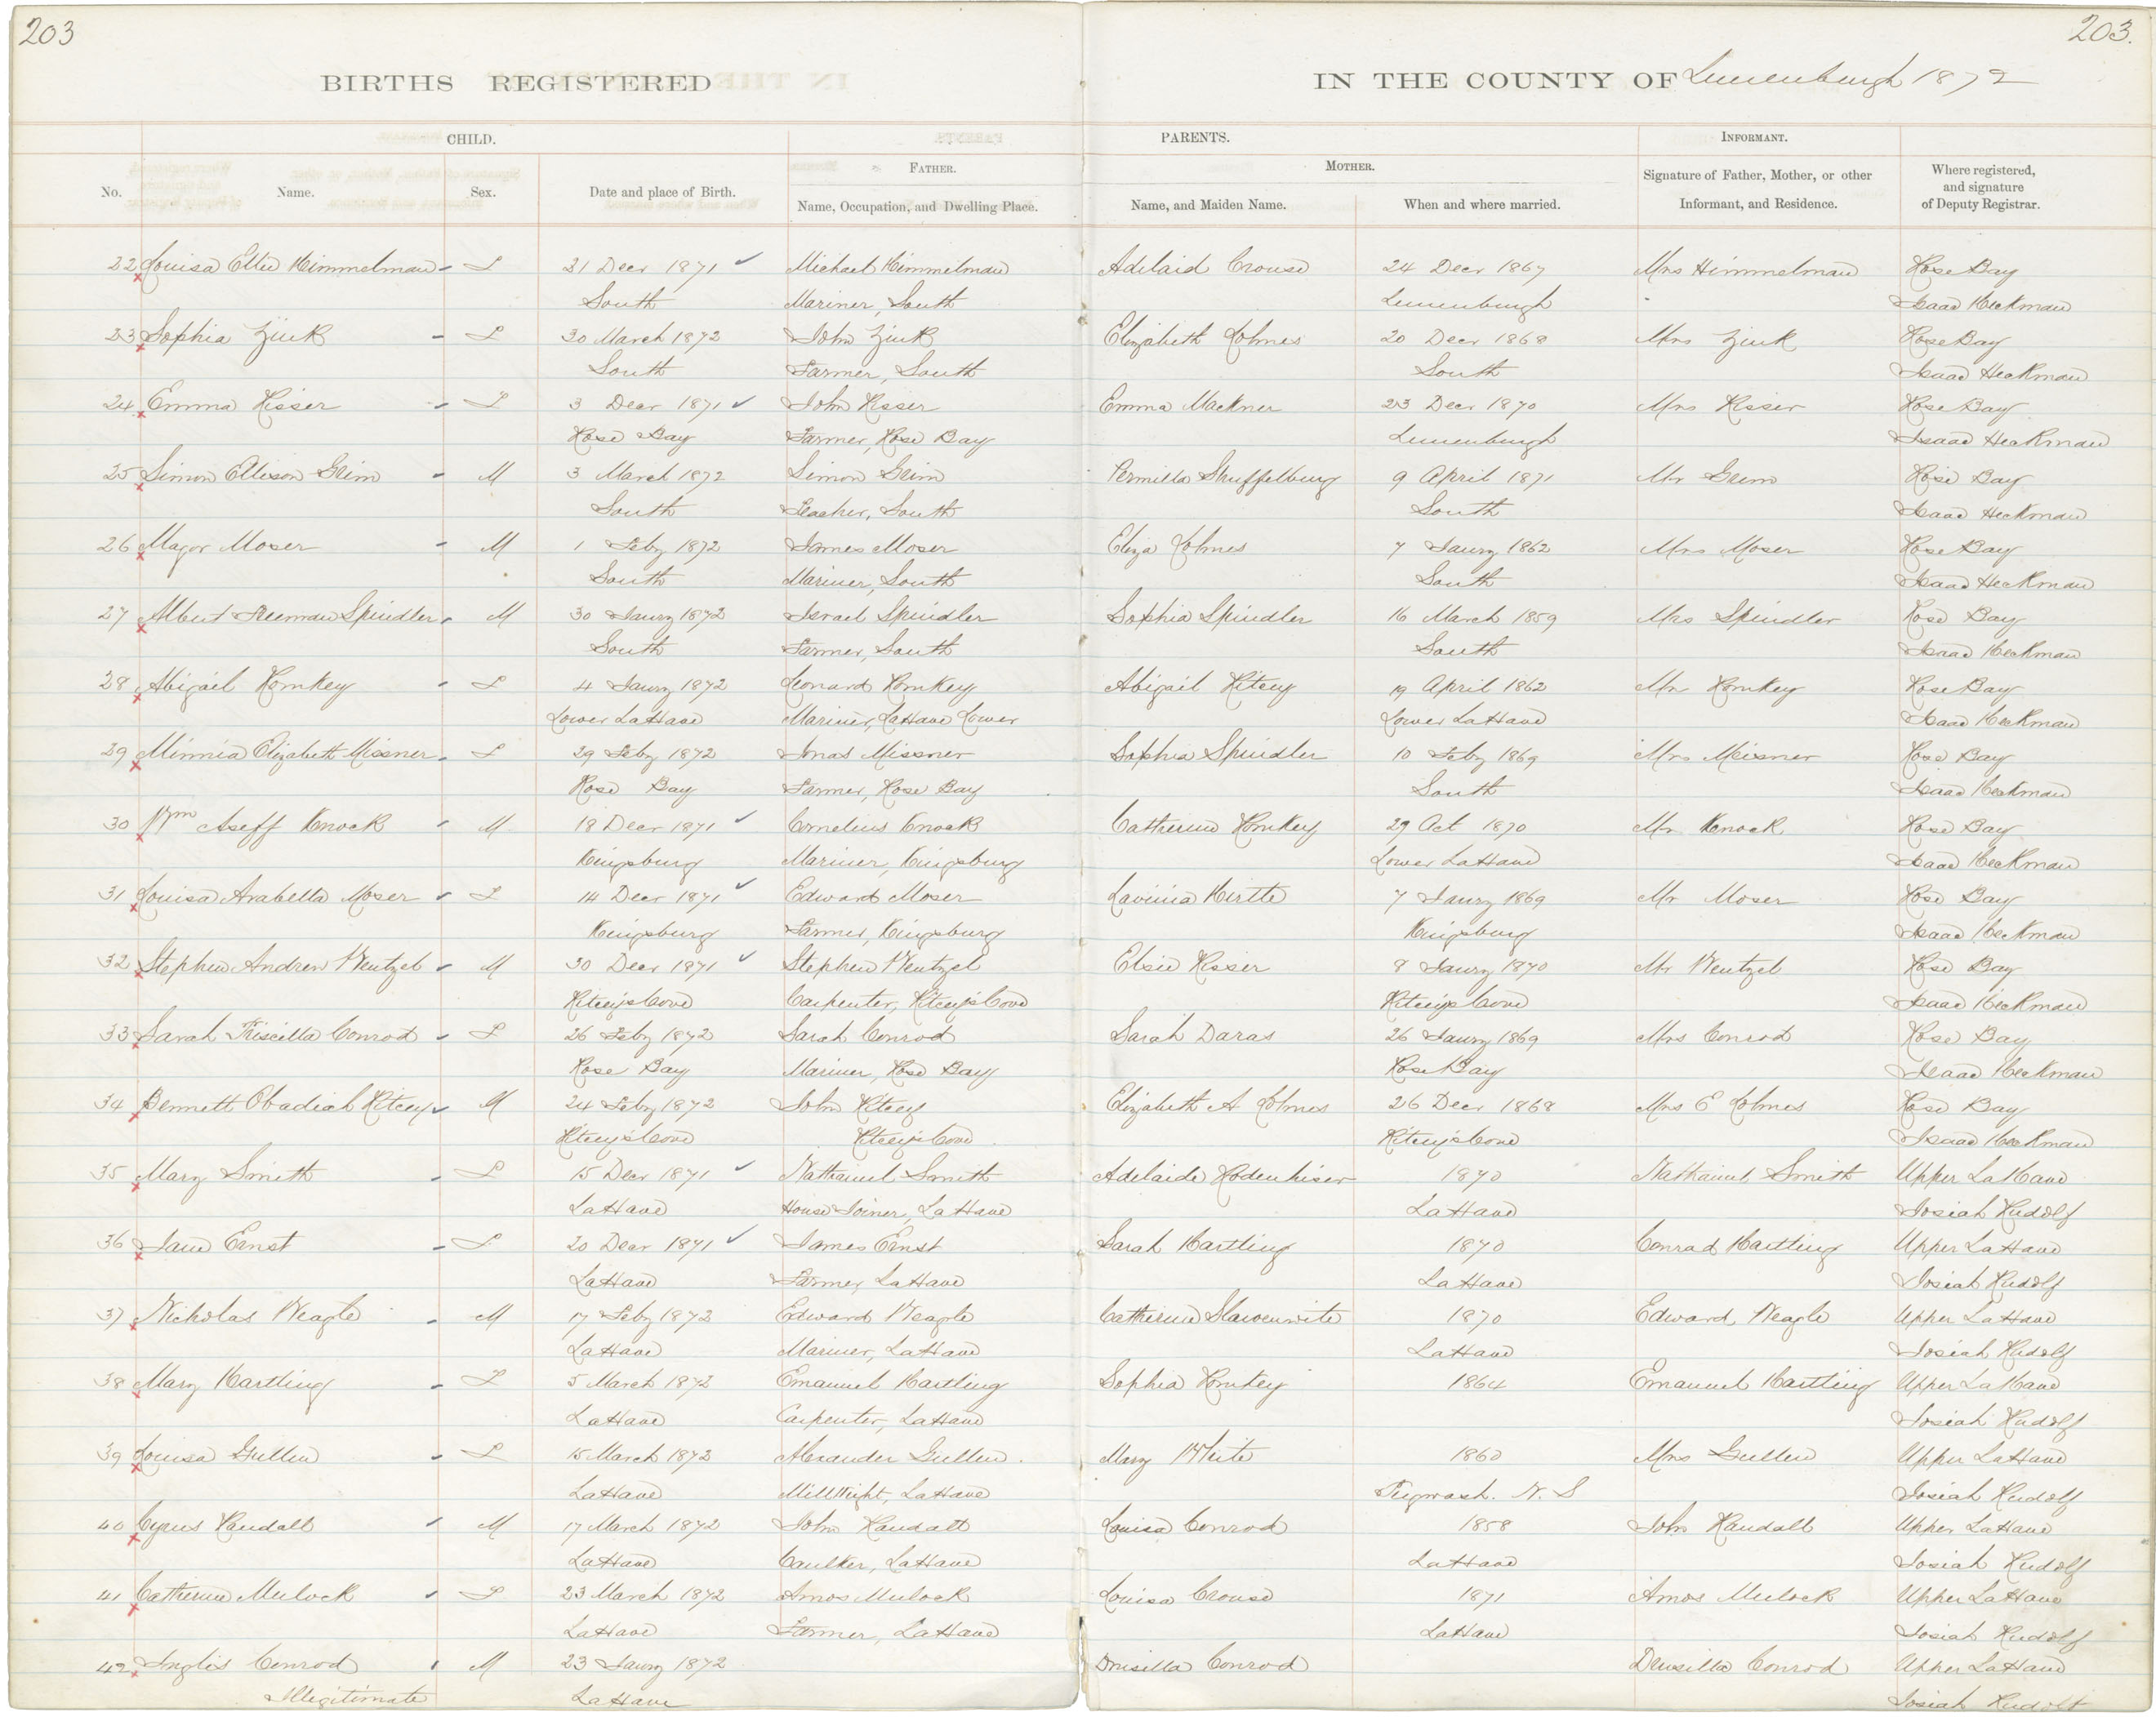 203
203.
BIRTHS REGISTERED IN THE COUNTY OF Lunenburgh 1872
CHILD. PARENTS. INFORMANT.
FATHER. MOTHER.
No. Name. Sex. Date and place of Birth. Name, Occupation, and Dwelling Place. Name, and Maiden Name. When and where married. Signature of Father, Mother, or other Informant, and Residence. Where registered, and signature of Deputy Registrar.
22 Louisa Ellen Himmelman - F 21 Decr 1871 ✓ Michael Himmelman Adelaid Crouse 24 Decr 1867 Mrs Himmelman Rose Bay
South Mariner, South Lunenburgh Isaac Heckman
23 Sophia Zink - F 20 March 1872 John Zink Elizabeth Lohnes 20 Decr 1868 Mrs Zink Rose Bay
South Farmer, South South Isaac Heckman
24 Emma Risser - F 3 Decr 1871 ✓ John Risser Emma Mackner 23 Decr 1870 Mrs Risser Rose Bay
Rose Bay Farmer, Rose Bay Lunenburgh Isaac Heckman
25 Simon Ellison Geim - M 3 March 1872 Simon Geim Permilla Shuffelburg 9 April 1871 Mr Geim Rose Bay
South Teacher, South South Isaac Heckman
26 Major Moser - M 1 Feby 1872 James Moser Eliza Lohnes 7 Jaury 1862 Mrs Moser Rose Bay
South Mariner, South South Isaac Heckman
27 Albert Freeman Spindler - M 30 Jaury 1872 Israel Spindler Sophia Spindler 16 March 1859 Mrs Spindler Rose Bay
South Farmer, South South Isaac Heckman
28 Abigail Romkey - F 4 Jaury 1872 Leonard Romkey Abigail Ritcey 19 April 1862 Mr Romkey Rose Bay
Lower LaHave Mariner, LaHave Lower Lower LaHave Isaac Heckman
29 Minnia Elizabeth Missner - F 29 Feby 1872 Jonas Missner Sophia Spindler 10 Feby 1869 Mrs Meisner Rose Bay
Rose Bay Farmer, Rose Bay South Isaac Heckman
30 Wm Aseff Knock - M 18 Decr 1871 ✓ Cornelius Knock Catherine Romkey 29 Oct 1870 Mr Knock Rose Bay
Kingsburg Mariner, Kingsburg Lower LaHave Isaac Heckman
31 Louisa Arabella Moser - F 14 Decr 1871 ✓ Edward Moser Lavinia Hirtle 7 Jaury 1869 Mr Moser Rose Bay
Kingsburg Farmer, Kingsburg Kingsburg Isaac Heckman
32 Stephen Andrew Wentzel - M 30 Decr 1871 ✓ Stephen Wentzel Elsie Risser 8 Jaury 1870 Mr Wentzel Rose Bay
Ritcey's Cove Carpenter, Ritcey's Cove Ritcey's Cove Isaac Heckman
33 Sarah Priscilla Conrod - F 26 Feby 1872 Sarah Conrod Sarah Daras 26 Jaury 1869 Mrs Conrod Rose Bay
Rose Bay Mariner, Rose Bay Rose Bay Isaac Heckman
34 Bennett Obadiah Ritcey - M 24 Feby 1872 John Ritcey Elizabeth A Lohnes 26 Decr 1868 Mrs E Lohnes Rose Bay
Ritcey's Cove Ritcey's Cove Ritcey's Cove Isaac Heckman
35 Mary Smith - F 15 Decr 1871 ✓ Nathaniel Smith Adelaide Rodenhiser 1870 Nathaniel Smith Upper LaHave
LaHave House Joiner, LaHave LaHave Josiah Rudolf
36 Jane Ernst - F 20 Decr 1871 ✓ James Ernst Sarah Hartling 1870 Conrad Hartling Upper LaHave
LaHave Farmer, LaHave LaHave Josiah Rudolf
37 Nicholas Weagle - M 17 Feby 1872 Edward Weagle Catherine Slawenwite 1870 Edward Weagle Upper LaHave
LaHave Mariner, LaHave LaHave Josiah Rudolf
38 Mary Hartling - F 5 March 1872 Emanuel Hartling Sophia Romkey 1864 Emanuel Hartling Upper LaHave
LaHave Carpenter, LaHave Josiah Rudolf
39 Louisa Gullen - F 15 March 1872 Alexander Gullen Mary White 1860 Mrs Gullen Upper LaHave
LaHave MillWright, LaHave Pugwash. N. S Josiah Rudolf
40 Cyrus Randall - M 17 March 1872 John Randall Louisa Conrod 1858 John Randall Upper LaHave
LaHave Caulker, LaHave LaHave Josiah Rudolf
41 Catherine Mulock - F 23 March 1872 Amos Mulock Louisa Crouse 1871 Amos Mulock Upper LaHave
LaHave Farmer, LaHave LaHave Josiah Rudolf
42 Inglis Conrod - M 23 Jaury 1872 Drusilla Conrod Drusilla Conrod Upper LaHave
Illegitimate LaHave Josiah Rudolf